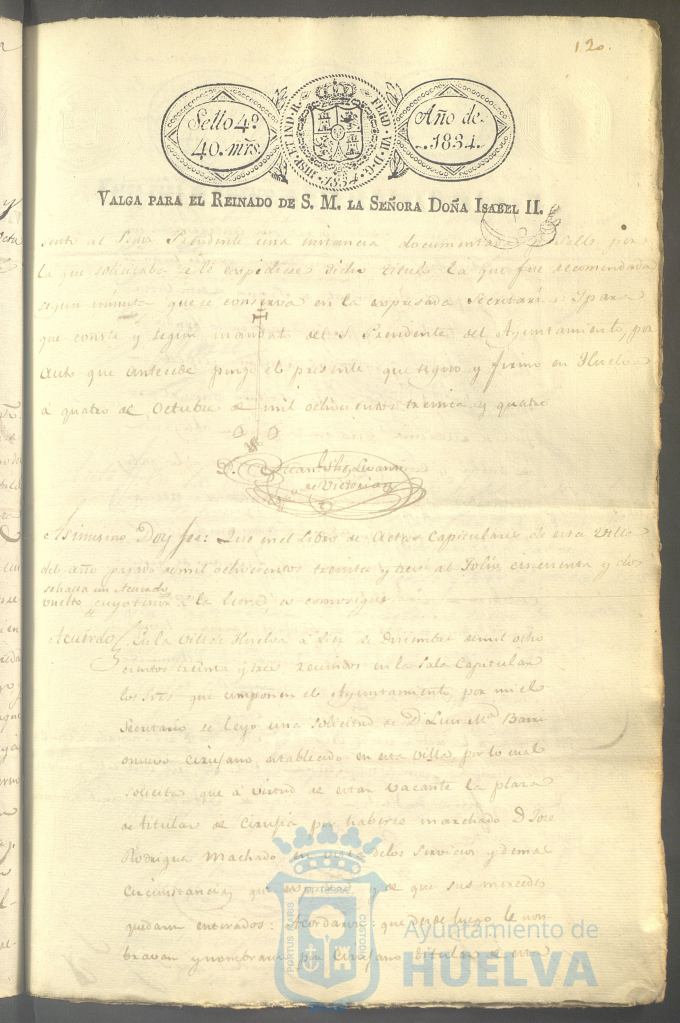 120.
Sello 4º
40. mrs.
HISP. ET IND. R. FERD. VII. D. G. 1834
Año de
1834.
VALGA PARA EL REINADO DE S. M. LA SEÑORA DOÑA ISABEL II.
sente al Señor Presidente una instancia documentada de Sello, por
la que solicitaba se le expidiese dicho titulo la que fue recomendada
segun minuta que se conserva en la expresada Secretaria. Y para
que conste y segun mandato del S. Presidente del Ayuntamiento, por
auto que antecede pongo el presente que signo y firmo en Huelva
a quatro de Octubre de mil ochocientos treinta y quatro
de Victorian
Asimismo Doy fee: Que en el Libro de Actas Capitulares de esta Villa
del año pasado de mil ochocientos treinta y tres al folio cincuenta y dos
se halla un Acuerdo
vuelto cuyo tenor a la letra es como sigue
Acuerdo En la Villa de Huelva á diez de Diciembre de mil ocho
cientos treinta y tres reunidos en la Sala Capitular
los Sres que componen el Ayuntamiento, por mi el
Secretario se leyó una solicitud de D. Luis Mª Barri
onuevo Cirujano establecido en esta villa, por lo cual
solicita que á virtud de estar vacante la plaza
de titular de Cirujia por haberse marchado D Jose
Rodrigues Machado, en vista de los Servicios y demas
circunstancias que expresa, y de que sus mercedes
quedaron enterados: Acordaron: que desde luego le nom
braran y nombraron por Cirujano titular de esta
PORTUS MARIS ET TERRAE CUSTODIA
Ayuntamiento de
HUELVA